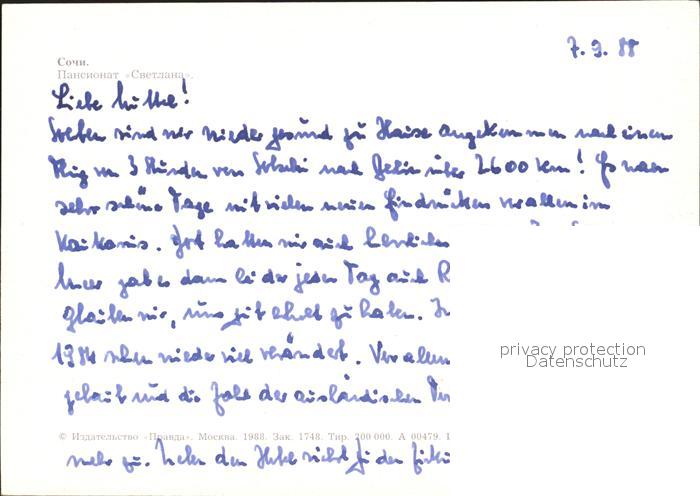 7. 9. 88
Сочи.
Пансионат «Светлана».
Liebe Mutter!
Soeben sind wir wieder gesund zu Hause angekommen nach einem
Flug von 3 Stunden von Sotschi nach Berlin über 2600 km! Es waren
sehr schöne Tage mit vielen neuen Eindrücken vor allem im
Kaukasus. Dort hatten wir auch herrliches
Meer gab es dann leider jeden Tag auch R
glauben wir, uns gut erholt zu haben. In
1984 schon wieder viel verändert. Vor allem
gebaut und die Zahl der ausländischen
privacy protection
Datenschutz
© Издательство «Правда». Москва. 1988. Зак. 1748. Тир. 200 000. А 00479. 1
mehr zu. Neben dem Hotel nicht